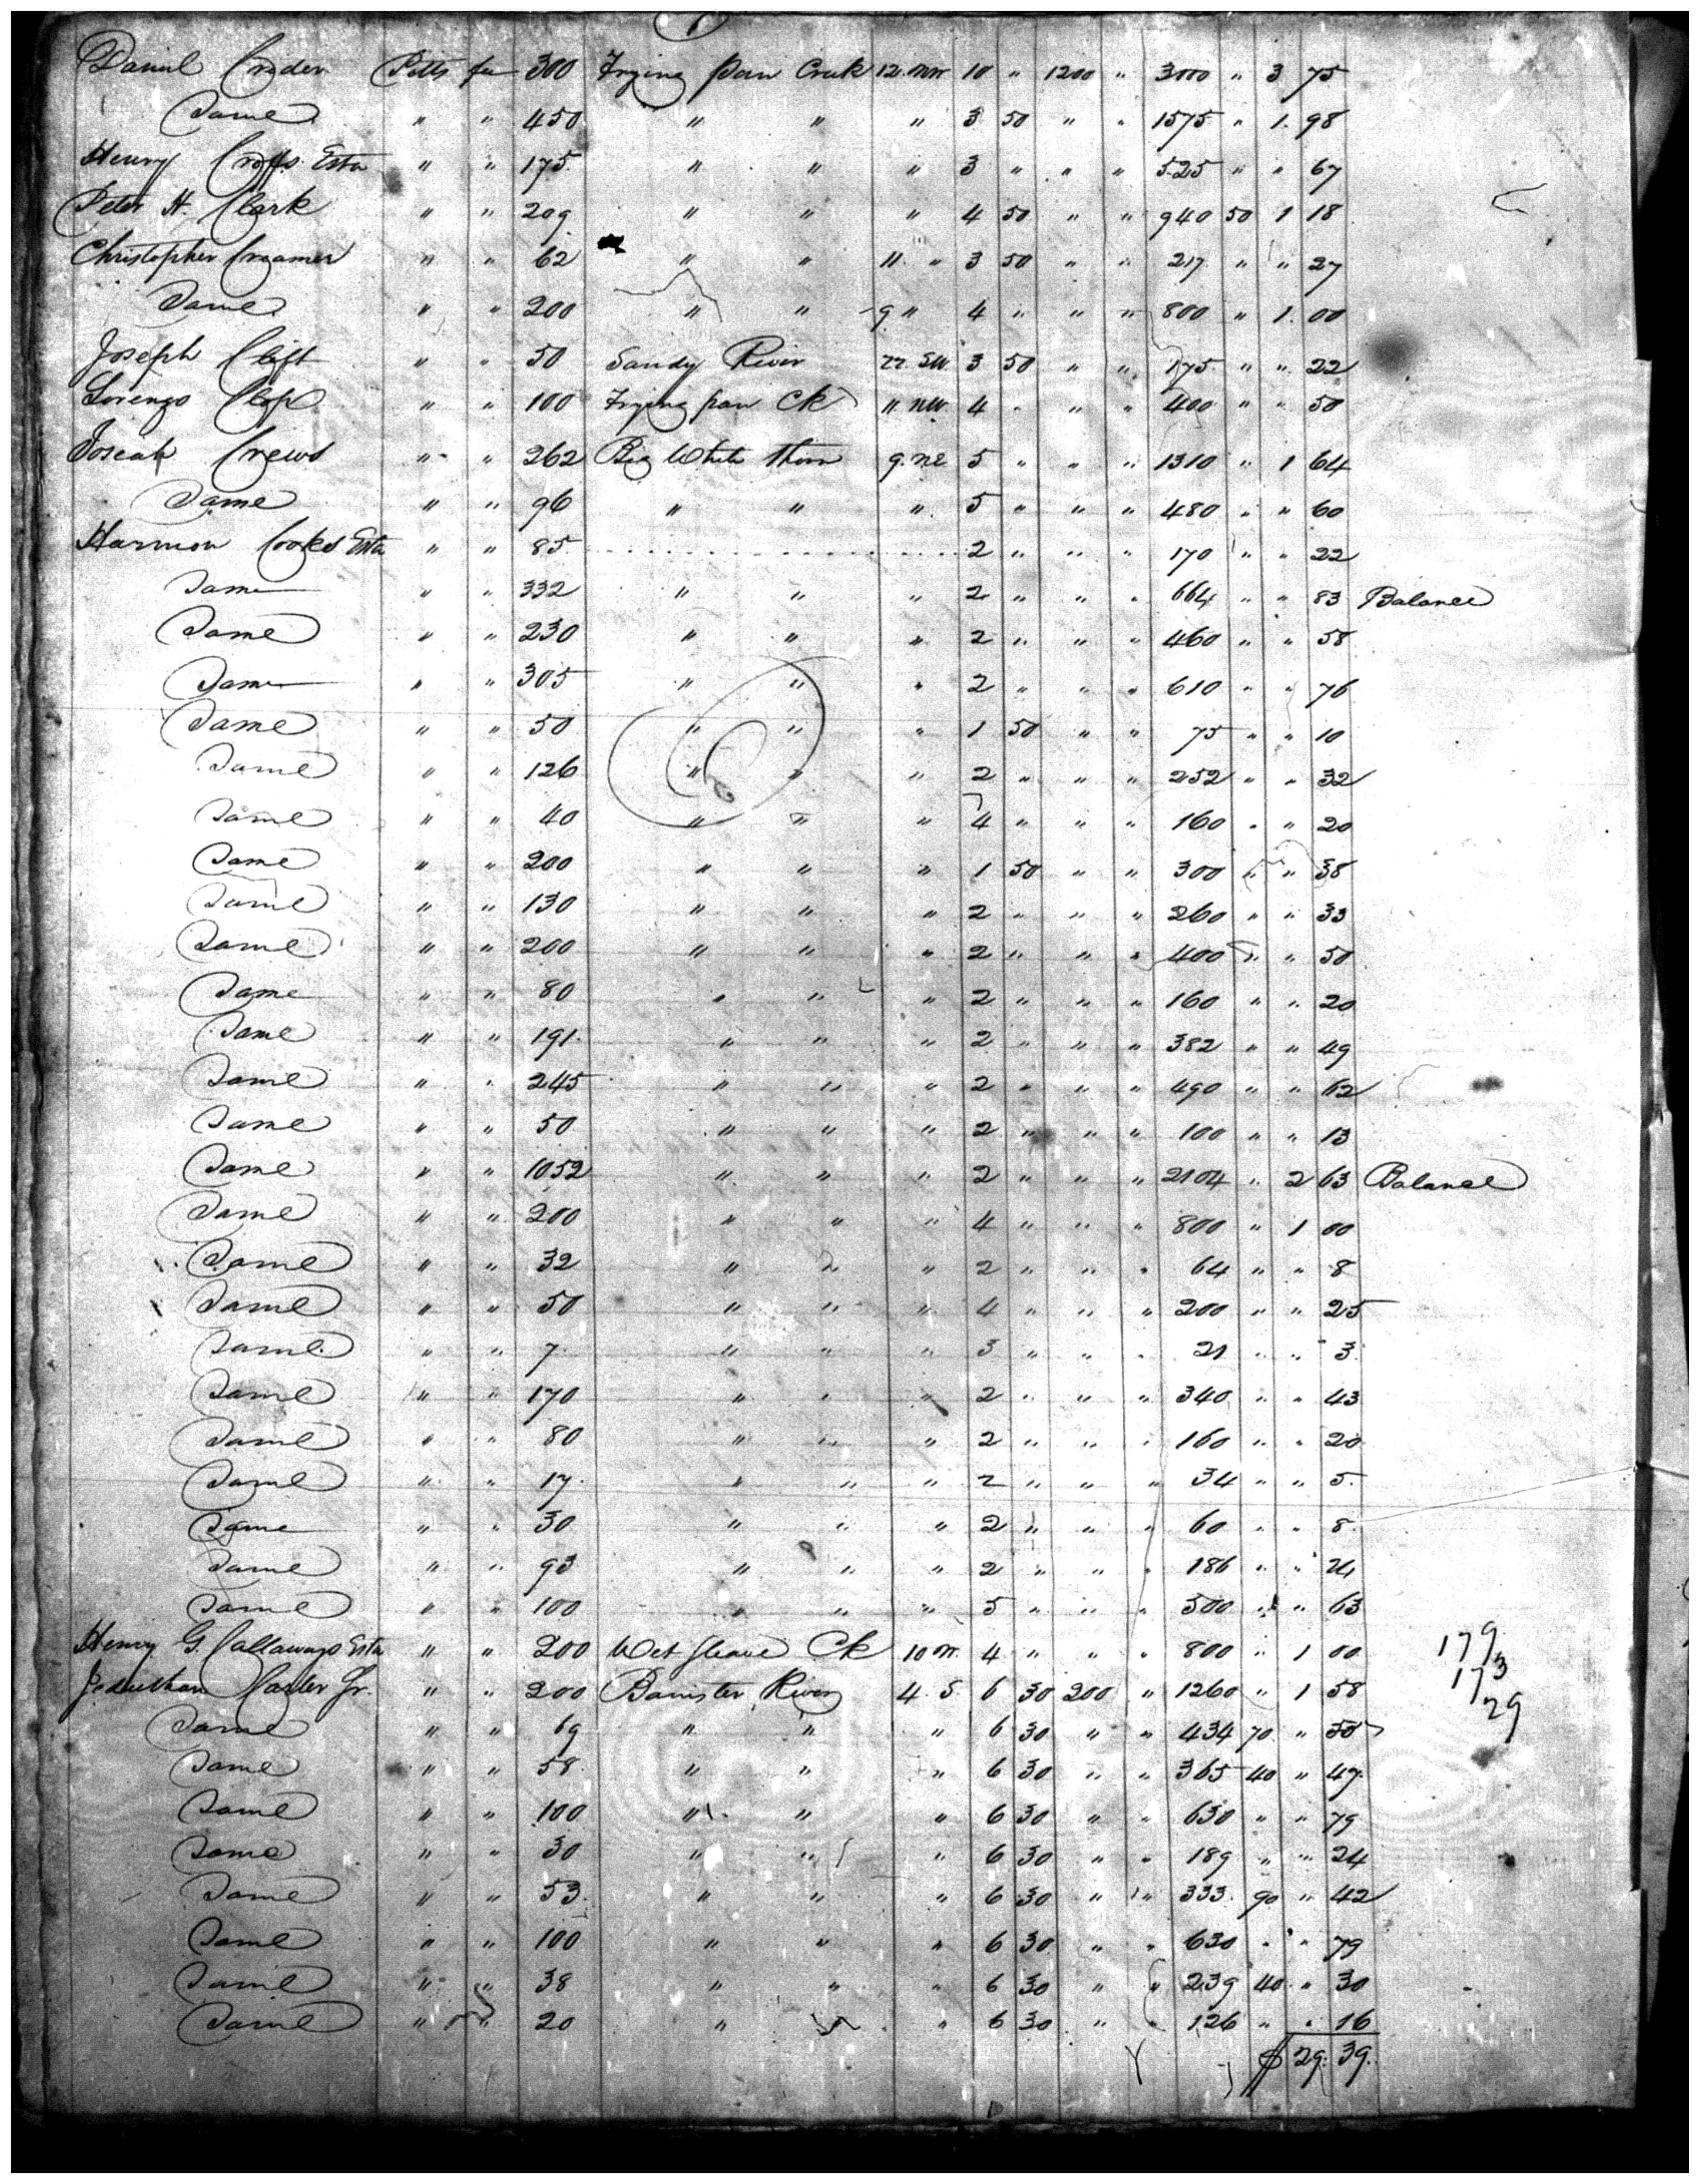 Daniel Crider Pitts fee 300 Frying pan Creek 12. NW 10 " 1200 " 3000 " 3 75
Same " " 450 " " " 3 50 " " 1575 " 1. 98
Henry Crofts Esta " " 175 " " " 3 " " " 525 " " 67
Peter H. Clark " " 209 " " " 4 50 " " 940 50 1 18
Christopher Creamer " " 62 " " 11. " 3 50 " " 217 " " 27
Same " " 200 " " 9 " 4 " " " 800 " 1. 00
Joseph Clift " " 50 Sandy River 22. SW. 3 50 " " 175 " " 22
Lorenzo " " 100 Frying pan Ck 11. NW 4 " " " 400 " " 50
Joseah Crews " " 262 Big White Thorn 9. NE 5 " " " 1310 " 1 64
Same " " 96 " " " 5 " " " 480 " " 60
Harmon Cooks Esta " " 85 2 " " " 170 " " 22
Same " " 332 " " " 2 " " " 664 " " 83 Balance
Same " " 230 " " " 2 " " " 460 " " 58
Same " " 305 " " " 2 " " " 610 " " 76
Same " " 50 " " " 1 50 " " 75 " " 10
Same " " 126 " " " 2 " " " 252 " " 32
Same " " 40 " " " 4 " " " 160 " " 20
Same " " 200 " " " 1 50 " " 300 " " 38
Same " " 130 " " " 2 " " " 260 " " 33
Same " " 200 " " " 2 " " " 400 " " 50
Same " " 80 " " " 2 " " " 160 " " 20
Same " " 191 " " " 2 " " " 382 " " 49
Same " " 245 " " " 2 " " " 490 " " 62
Same " " 50 " " " 2 " " " 100 " " 13
Same " " 1052 " " " 2 " " " 2104 " 2 63 Balance
Same " " 200 " " " 4 " " " 800 " 1 00
Same " " 32 " " " 2 " " " 64 " " 8
Same " " 50 " " " 4 " " " 200 " " 25
Same " " 7 " " " 3 " " " 21 " " 3
Same " " 170 " " " 2 " " " 340 " " 43
Same " " 80 " " " 2 " " " 160 " " 20
Same " " 17 " " " 2 " " " 34 " " 5
Same " " 30 " " " 2 " " " 60 " " 8
Same " " 93 " " " 2 " " " 186 " " 24
Same " " 100 " " " 5 " " " 500 " " 63
Henry G Callaways Esta " " 200 Wet Sleave Ck 10 N. 4 " " " 800 " 1 00 179
Jeduthan Carter Jr. " " 200 Banister River 4. S. 6 30 200 " 1260 " 1 58 173
Same " " 69 " " " 6 30 " " 434 70 " 55 29
Same " " 58 " " " 6 30 " " 365 40 " 47
Same " " 100 " " " 6 30 " " 630 " " 79
Same " " 30 " " " 6 30 " " 189 " " 24
Same " " 53 " " " 6 30 " " 333 90 " 42
Same " " 100 " " " 6 30 " " 630 " " 79
Same " " 38 " " " 6 30 " " 239 40 " 30
Same " " 20 " " " 6 30 " " 126 " " 16
$ 29. 39.